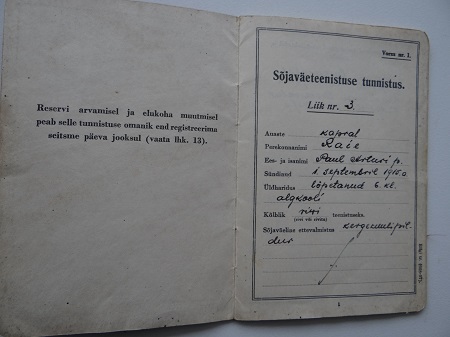 Reservi arvamisel ja elukoha muutmisel
peab selle tunnistuse omanik end registreerima
seitsme päeva jooksul (vaata lhk. 13).
Vorm nr. 1.
Sõjaväeteenistuse tunnistus.
Liik nr. 3
Auaste kapral
Perekonnanimi
Ees- ja isanimi Paul Arturi p.
Sündinud 1. septembril 1915 a
Üldharidus lõpetanud 6. kl.
algkooli
Kõlblik rivi teenistuseks.
(rivi või rivita)
Sõjaväeline ettevalmistus